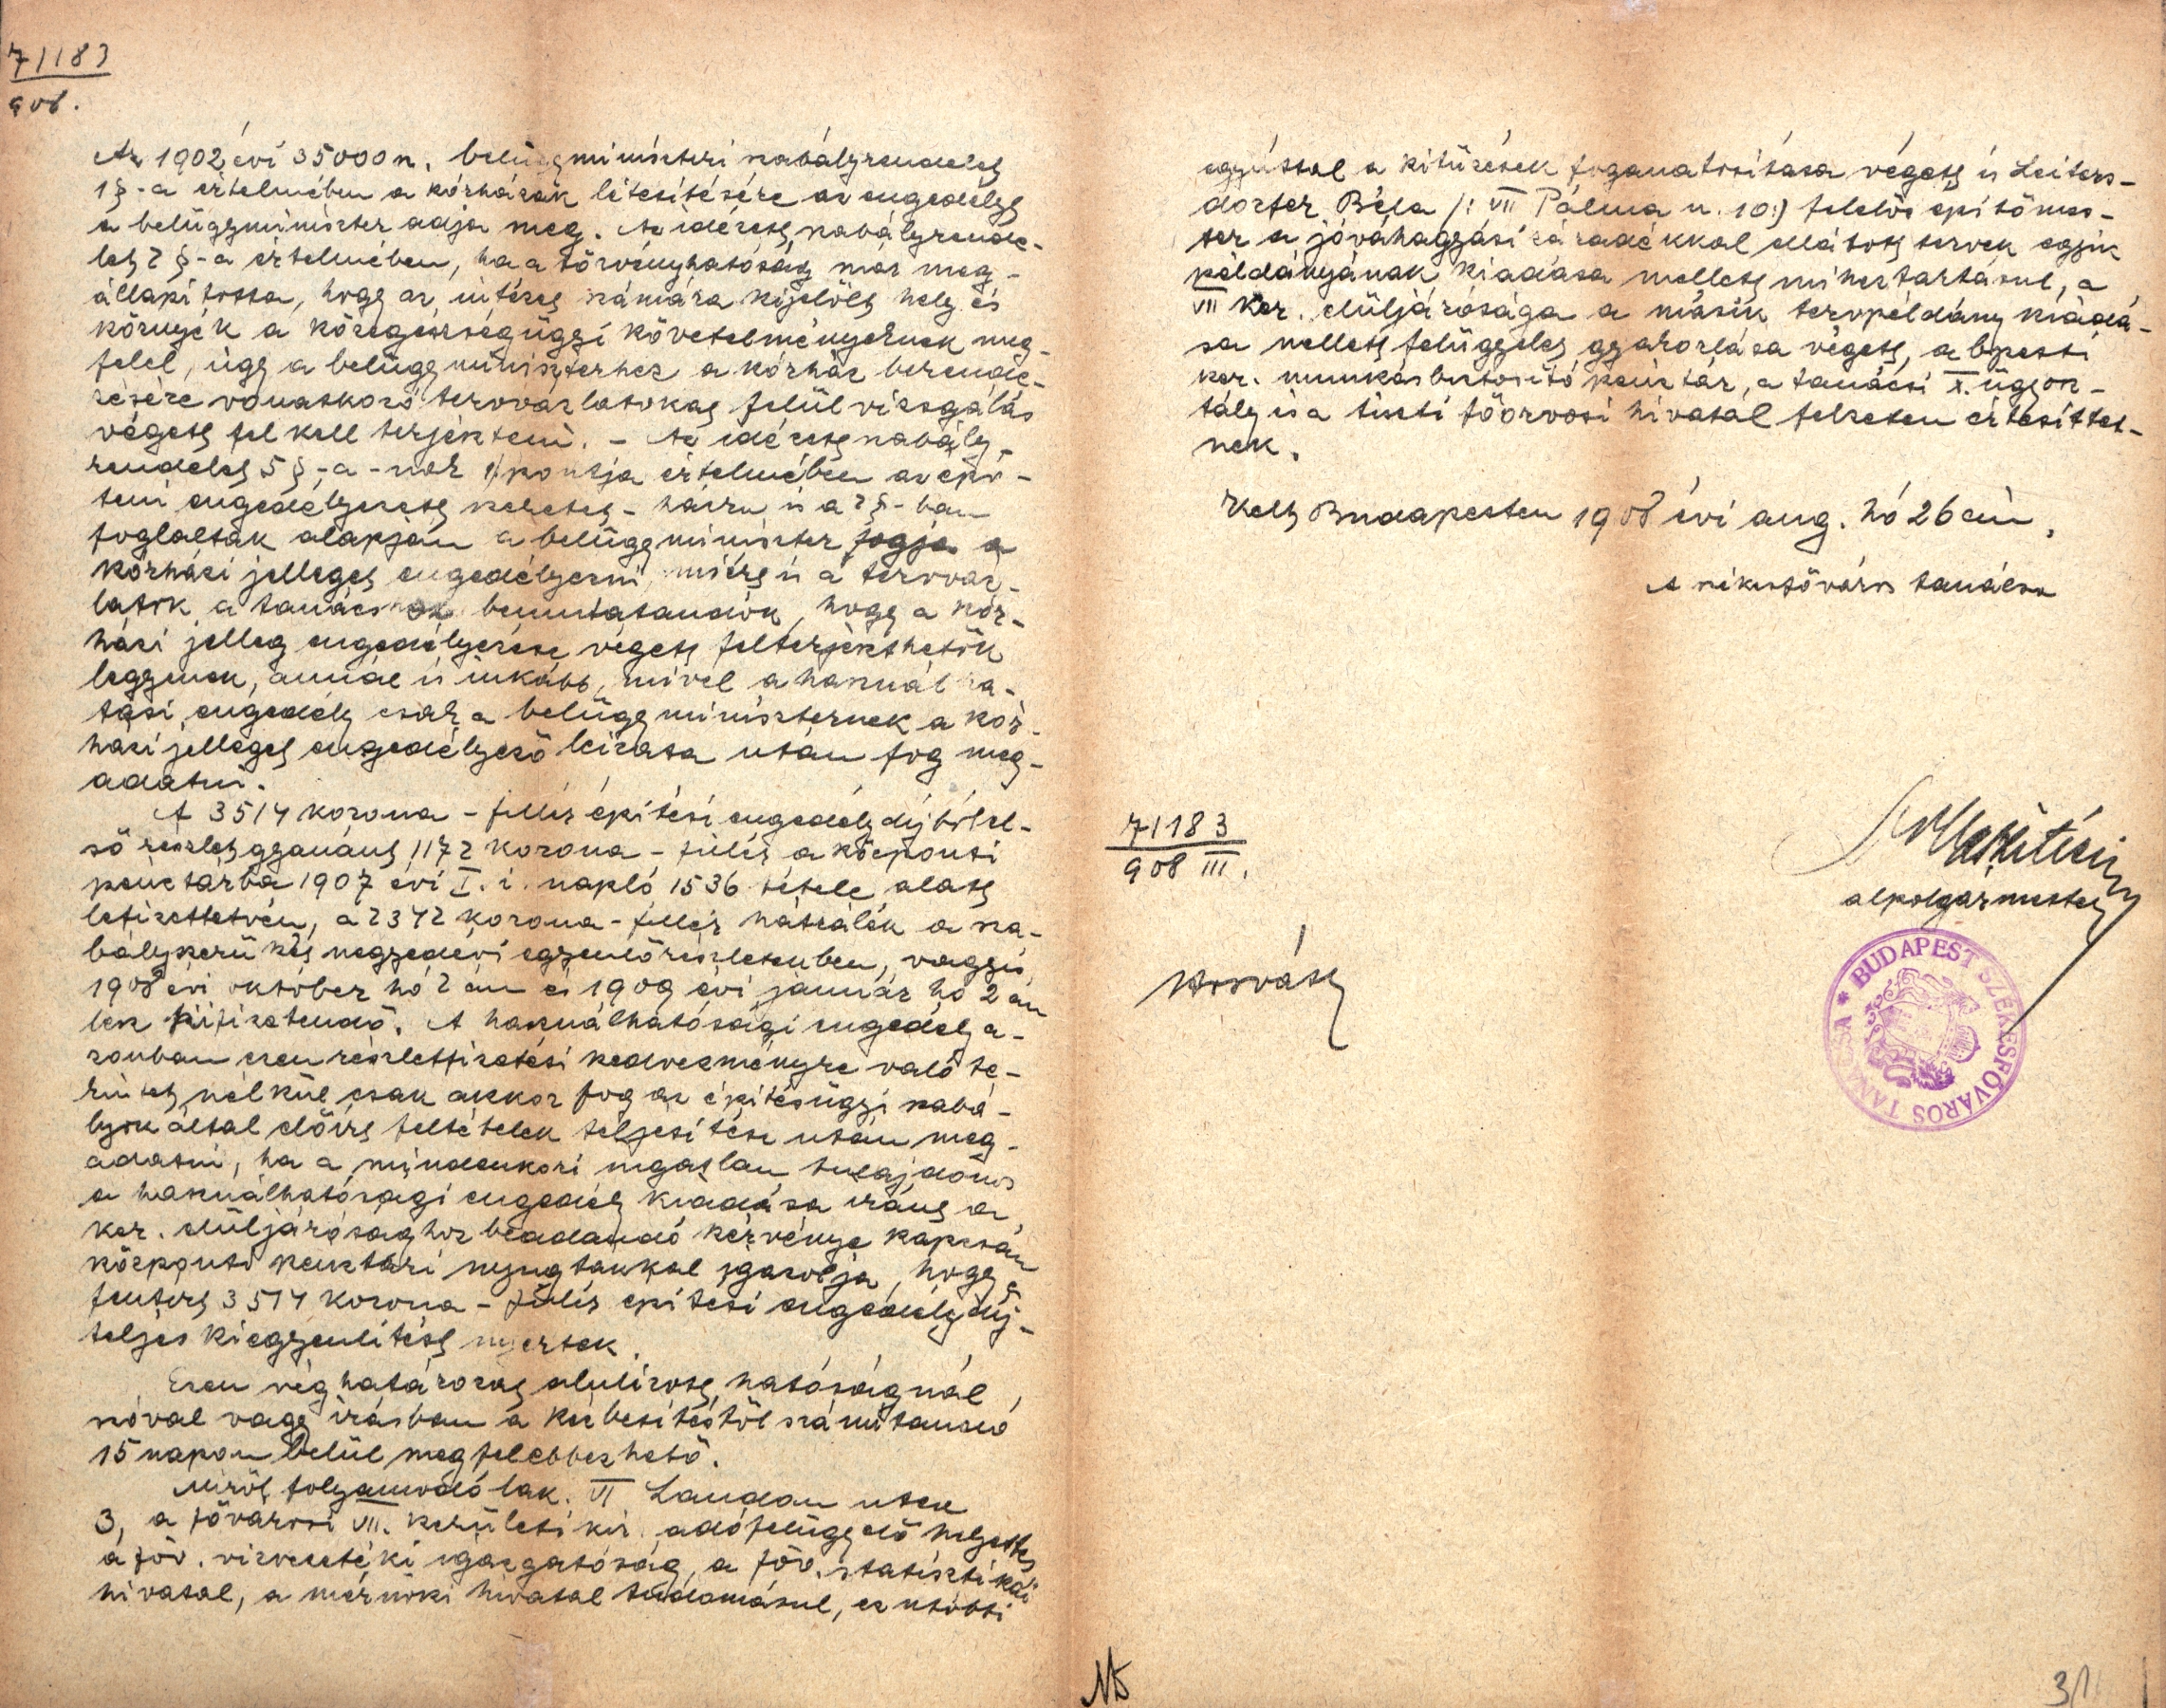 71183
908.
Az 1902 évi 35000 n. belügyminiszteri szabályrendelet
1 §-a értelmében a kórházak létesítésére az engedélyt
a belügyminiszter adja meg. Az idézett szabályrende-
let 2 §-a értelmében, ha a törvényhatóság már meg-
állapította, hogy az intézet számára kijelölt hely és
környék a közegészségügyi követelményeknek meg-
felel, úgy a belügyminiszterhez a kórház berende-
zésére vonatkozó tervvázlatokat felülvizsgálás
végett fel kell terjeszteni. - Az idézett szabály-
rendelet 5 §-a-nak 1/ pontja értelmében az épí-
teni engedélyezett keretes-házra is a 2 §-ban
foglaltak alapján a belügyminiszter fogja a
kórházi jelleget engedélyezni, miért is a tervváz-
latok a tanácsnak bemutatandók, hogy a kór-
házi jelleg engedélyezése végett felterjeszthetők
legyenek, annál is inkább, mivel a használha-
tási engedély csak a belügyminiszternek a kór-
házi jelleget engedélyező leirata után fog meg-
adatni.
A 3514 korona - fillér építési engedély díjból el-
ső részlet gyanánt 1172 korona - fillér a központi
pénztárba 1907 évi I. i. napló 1536 tétele alatt
lefizettetvén, a 2342 korona - fillér hátralék a sza-
bályszerű két negyedévi egyenlő részletekben, vagyis
1908 évi október hó 2 án és 1909 évi január hó 2 án
lesz kifizetendő. A használhatósági engedély a-
zonban ezen részletfizetési kedvezményre való te-
kintet nélkül csak akkor fog az építésügyi szabá-
lyok által előírt feltételek teljesítése után meg-
adatni, ha a mindenkori ingatlan tulajdonos
a használhatósági engedély kiadása iránt a
ker. elüljárósághoz beadandó kérvénye kapcsán
központi pénztári nyugtákkal igazolja, hogy a
fentirt 3514 korona - fillér építési engedély díj-
teljes kiegyenlítést nyertek.
Ezen véghatározat alulírott hatóságnál,
szóval vagy írásban a kézbesítéstől számítandó
15 napon belül megfelebbezhető.
Miről folyamodó lak. VI Landau utca
3, a fővárosi VII. kerületi kir. adófelügyelő helyettes
a főv. vízvezetéki igazgatóság, a főv. statisztikai
hivatal, a mérnöki hivatal tudomásul, ez utóbbi
egyúttal a kitűzések foganatosítása végett is Leiters-
dorfer Béla /: VII Pálma u. 10:/ felelős építőmes-
ter a jóváhagyási záradékkal ellátott tervek egyik
példányának kiadása mellett mihez tartásul, a
VII ker. elüljárósága a másik tervpéldány kiadá-
sa mellett felügyelet gyakorlása végett, a bpesti
ker. munkásbiztosító pénztár, a tanácsi X. ügyosz-
tály és a tiszti főorvosi hivatal felzeten értesíttet-
nek.
Kelt Budapesten 1908 évi aug. hó 26 án.
A székesfőváros tanácsa
alpolgármester
71183
908 III.
Horváth
* BUDAPEST SZÉKESFŐVÁROS TANÁCSA
31